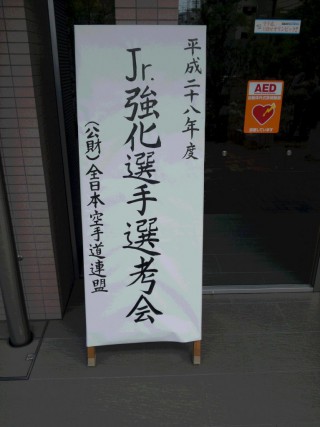 平成二十八年度
Jr.強化選手選考会
(公財)全日本空手道連盟
AED